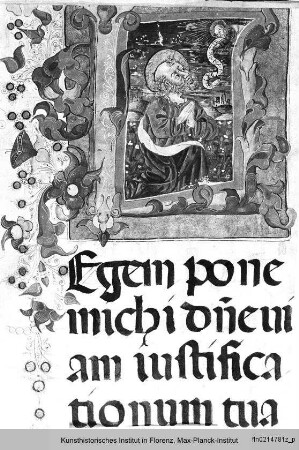 L
Egem pone
michi dn̄e vi
am iustifica
tionum tua
Kunsthistorisches Institut in Florenz, Max-Planck-Institut
fln0214781z_p